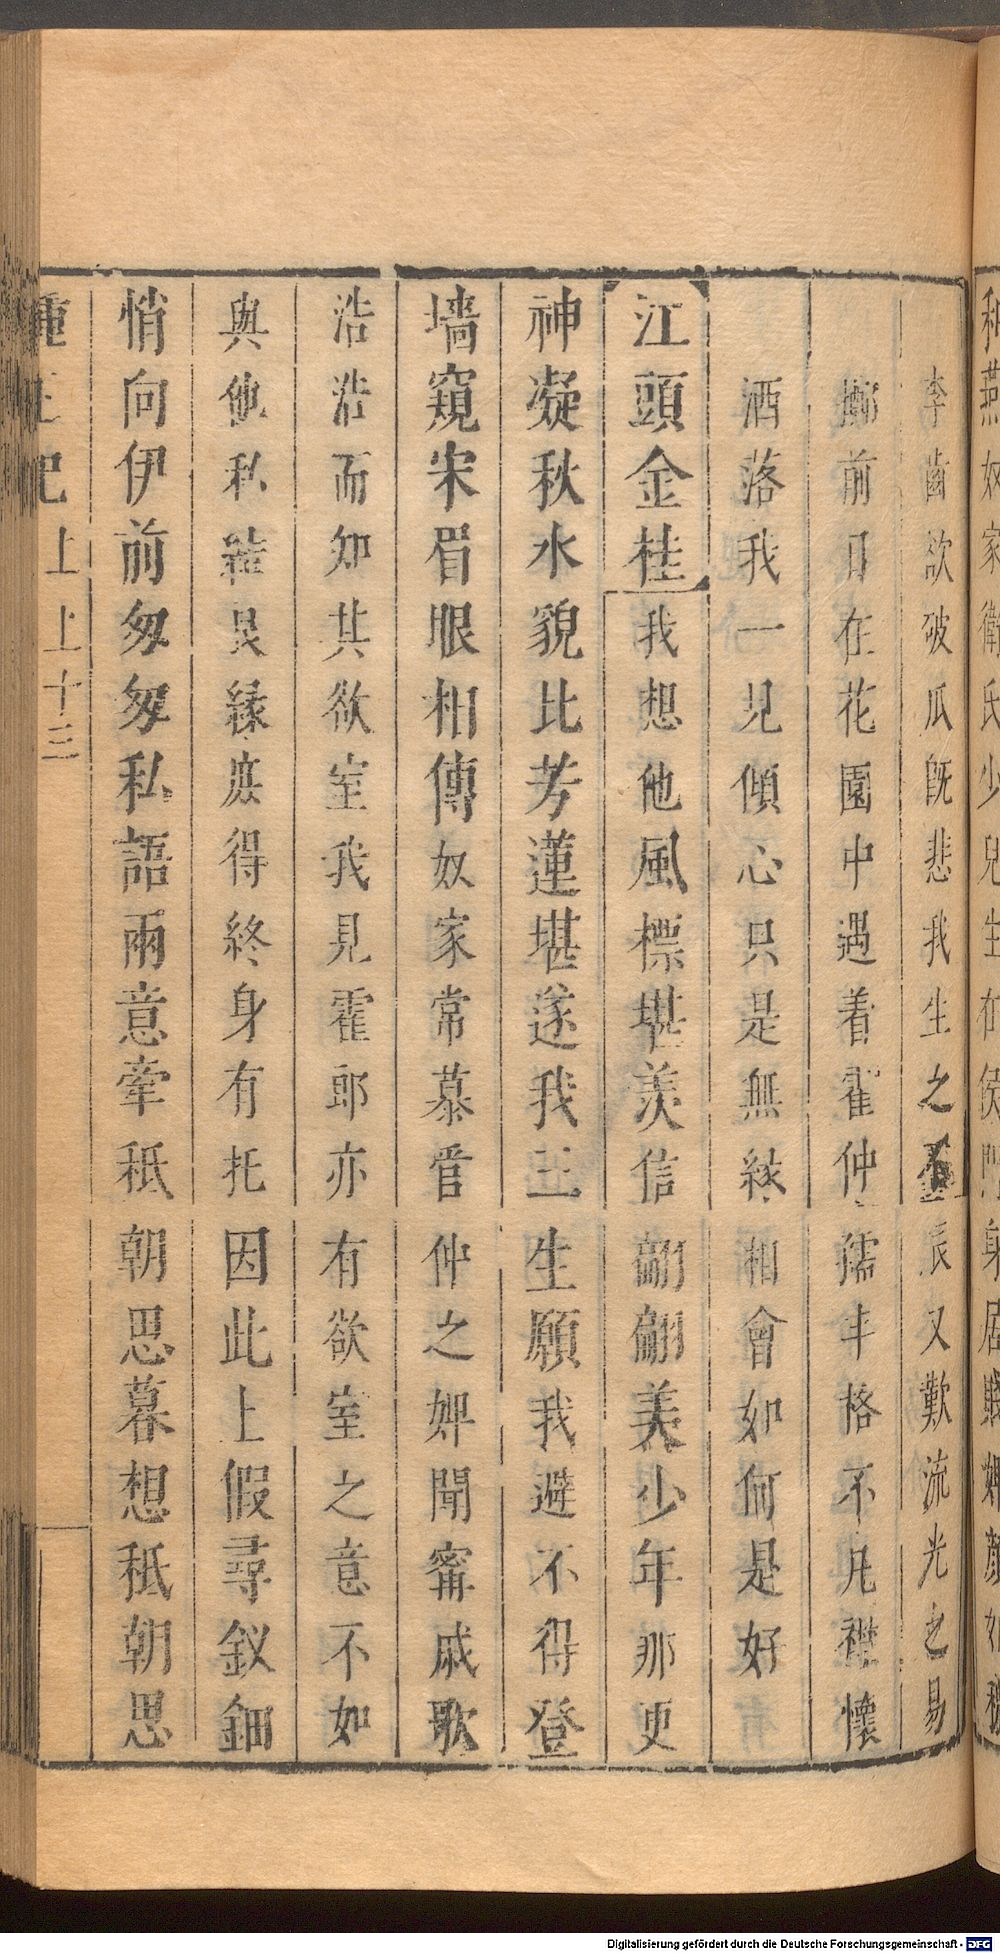 李齒欲破瓜旣悲我生之不辰又歎流光之易
擲前日在花園中遇着霍仲孺丰格不凡襟懷
洒落我一見傾心只是無緣相會如何是好
江頭金桂我想他風標堪羨信翩翩美少年那更
神凝秋水貌比芳蓮堪遂我三生願我避不得登
墻窺宋眉眼相傳奴家常慕管仲之婢聞甯戚歌
浩浩而知其欲室我見霍郎亦有欲室之意不如
與他私結良緣庻得終身有托因此上假尋釵鈿
悄向伊前匆匆私語兩意牽秪朝思暮想秪朝思
上上十三
Digitalisierung gefördert durch die Deutsche Forschungsgemeinschaft - DFG